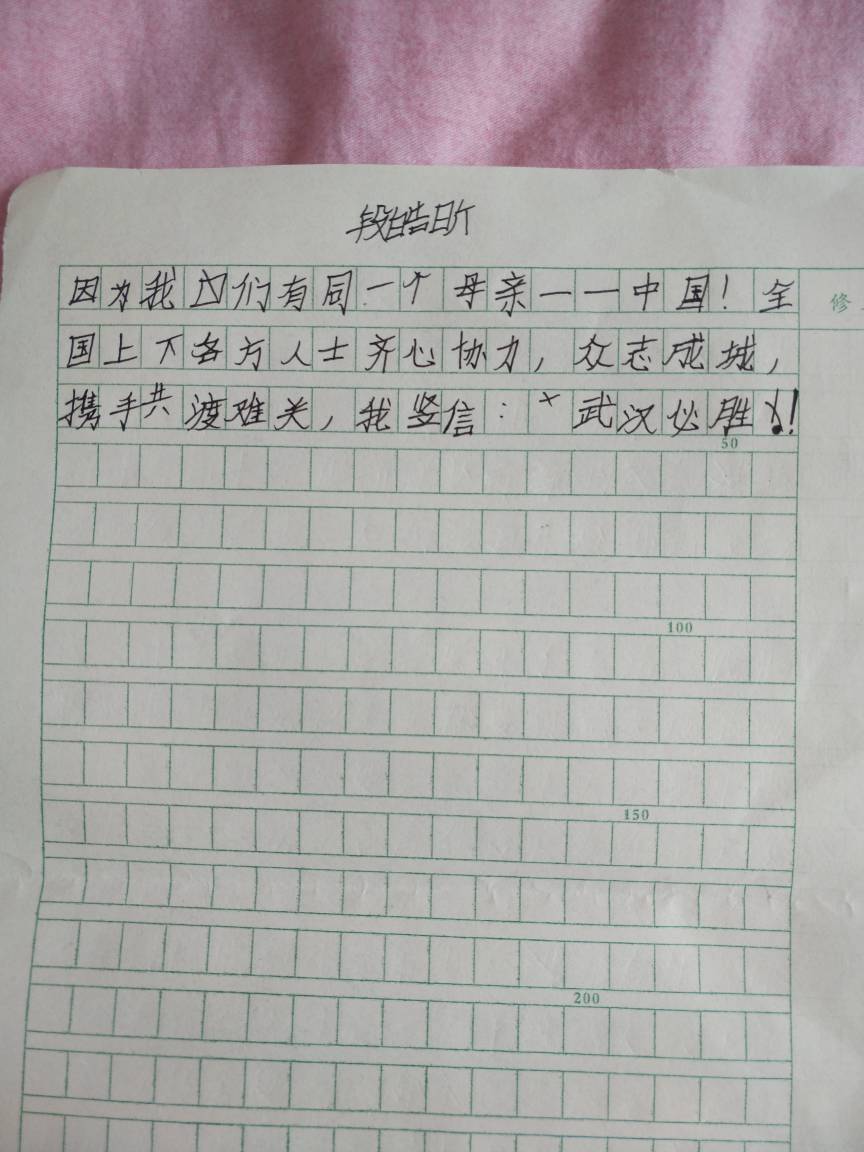 段皓昕
因为我们有同一个母亲——中国！全
修
国上下各方人士齐心协力，众志成城，
携手共渡难关，我坚信：“武汉必胜！！
50
100
150
200